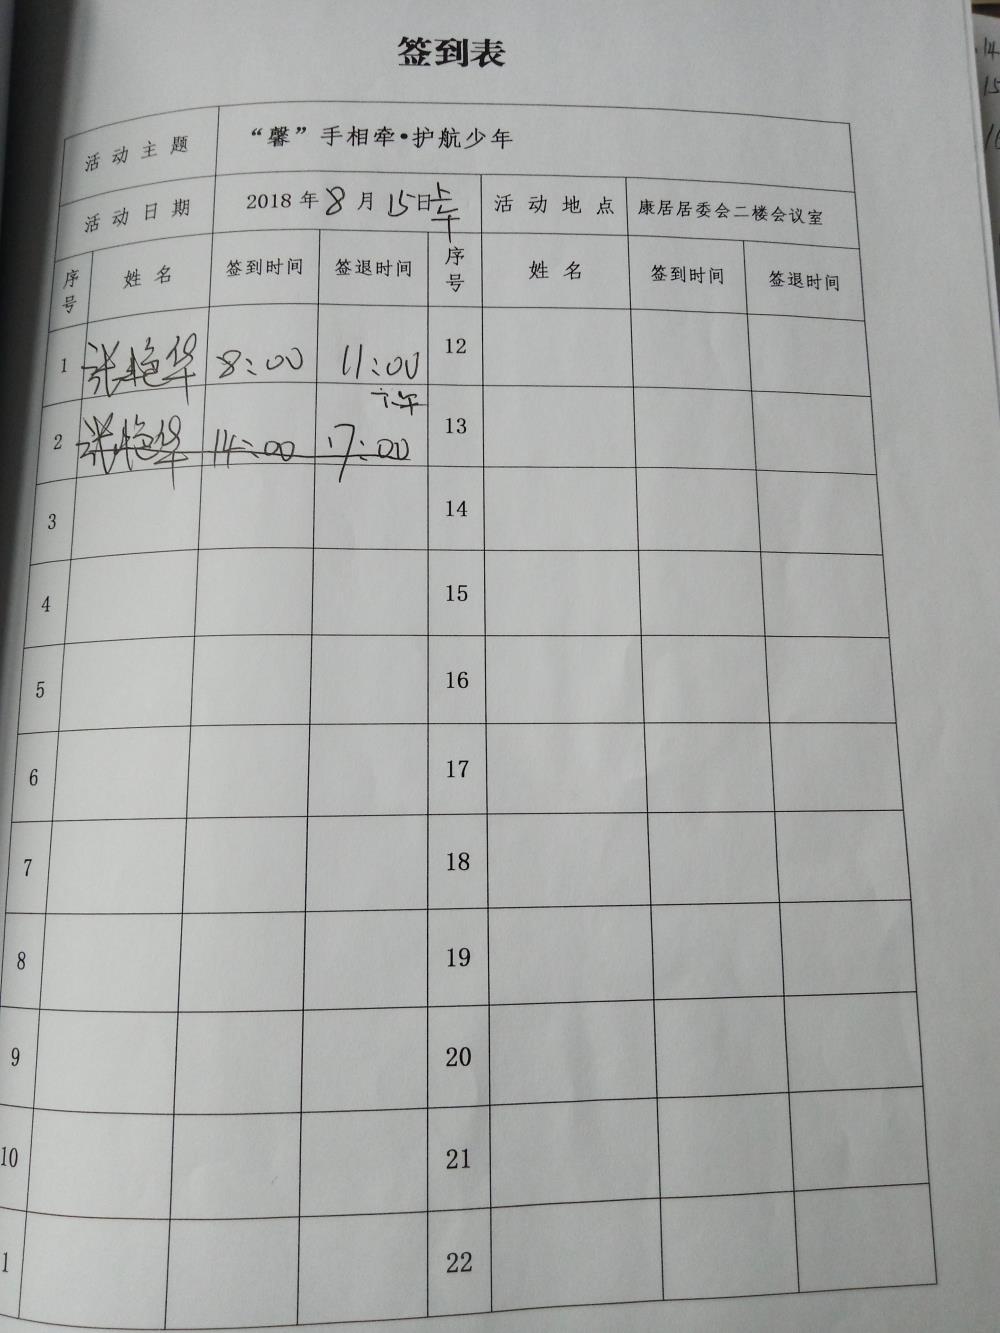 签到表
活动主题 “馨”手相牵•护航少年
活动日期 2018年8月15日上午 活动地点 康居居委会二楼会议室
序号 姓名 签到时间 签退时间 序号 姓名 签到时间 签退时间
1 张艳华 8:00 11:00 12
下午
2 张艳华 14:00 17:00 13
3 14
4 15
5 16
6 17
7 18
8 19
9 20
10 21
1 22
14
15